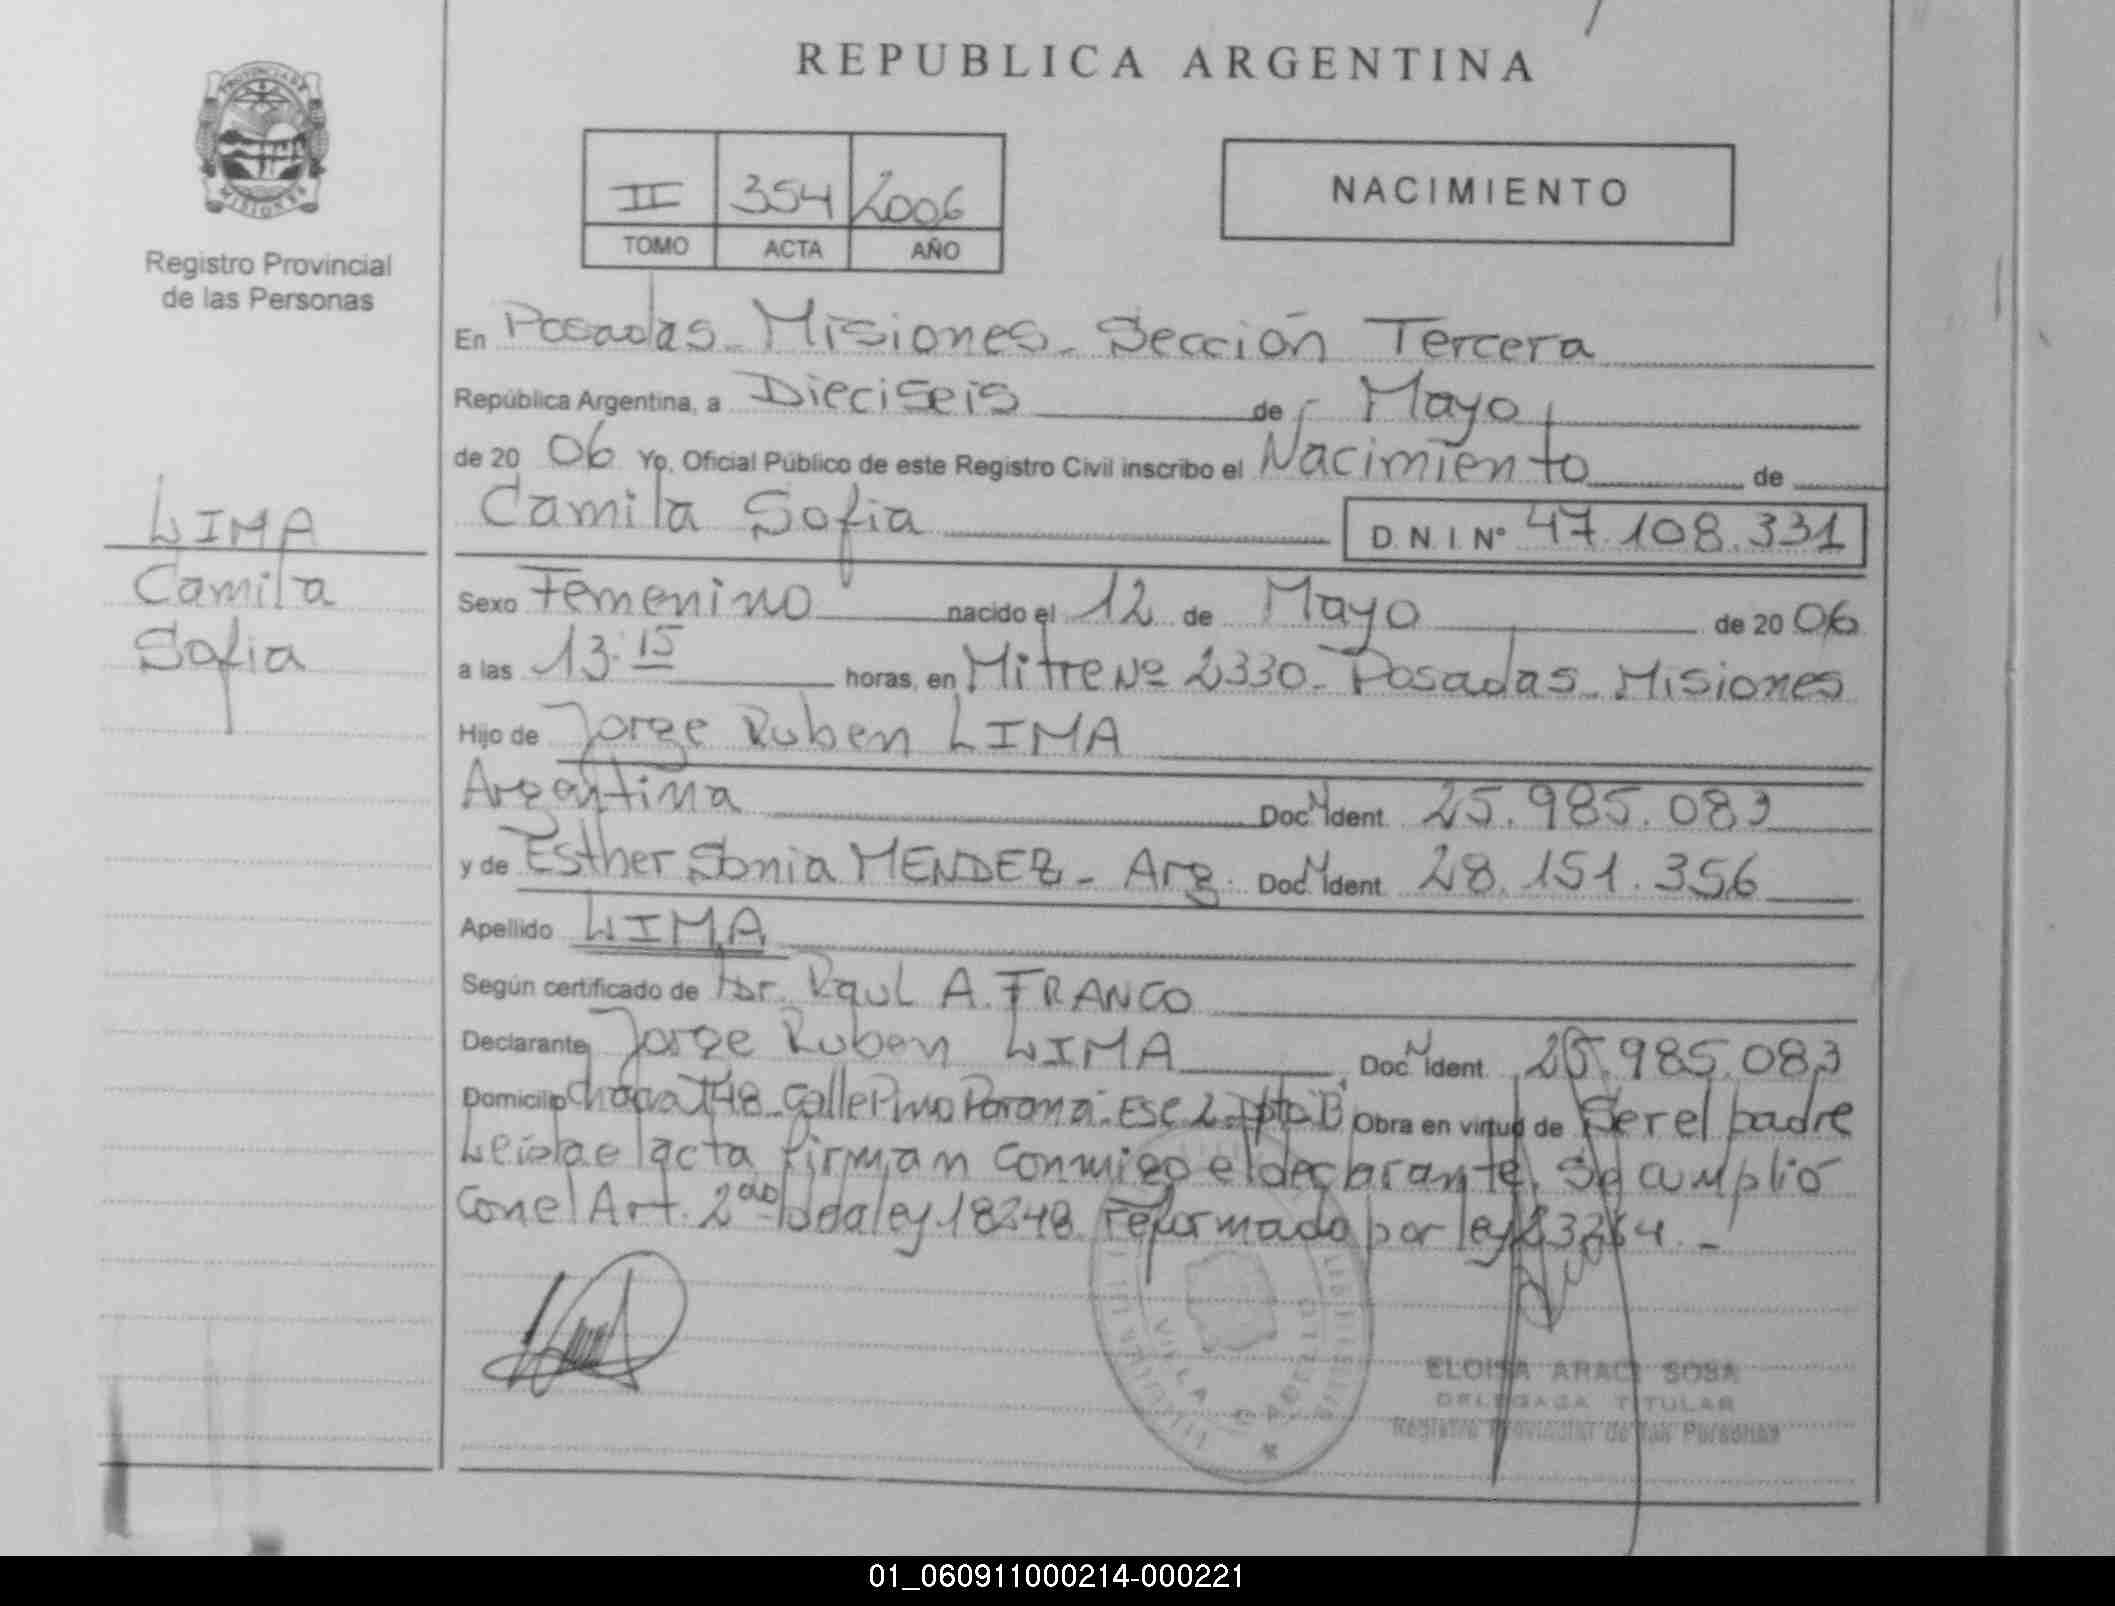 REPUBLICA ARGENTINA
PROVINCIA DE
MISIONES
Registro Provincial
de las Personas
II 354 2006
TOMO ACTA AÑO
NACIMIENTO
En Posadas - Misiones - Sección Tercera
República Argentina, a Dieciseis de Mayo
de 20 06 Yo, Oficial Público de este Registro Civil inscribo el Nacimiento de
Camila Sofia D. N. I. Nº 47.108.331
LIMA
Camila
Sofia
Sexo Femenino nacido el 12 de Mayo de 20 06
a las 13:15 horas, en Mitre Nº 2330 - Posadas - Misiones
Hijo de Jorge Ruben LIMA
Argentina Doc. N. Ident. 25.985.083
y de Esther Sonia MENDEZ - Arg. Doc. N. Ident. 28.151.356
Apellido LIMA
Según certificado de Dr. Raul A. FRANCO
Declarante Jorge Ruben LIMA Doc. N. Ident. 25.985.083
Domicilio Chacra 148 - Calle Pino Parana - Esc 2 - Dpto "B" Obra en virtud de Ser el padre
Leida el acta firman conmigo el declarante. Se cumplió
con el Art. 2do de la ley 18248 reformado por ley 23264. -
VILLA CABELLO
ELOISA ARACI SOSA
DELEGADA TITULAR
Registro Provincial de las Personas
01_060911000214-000221